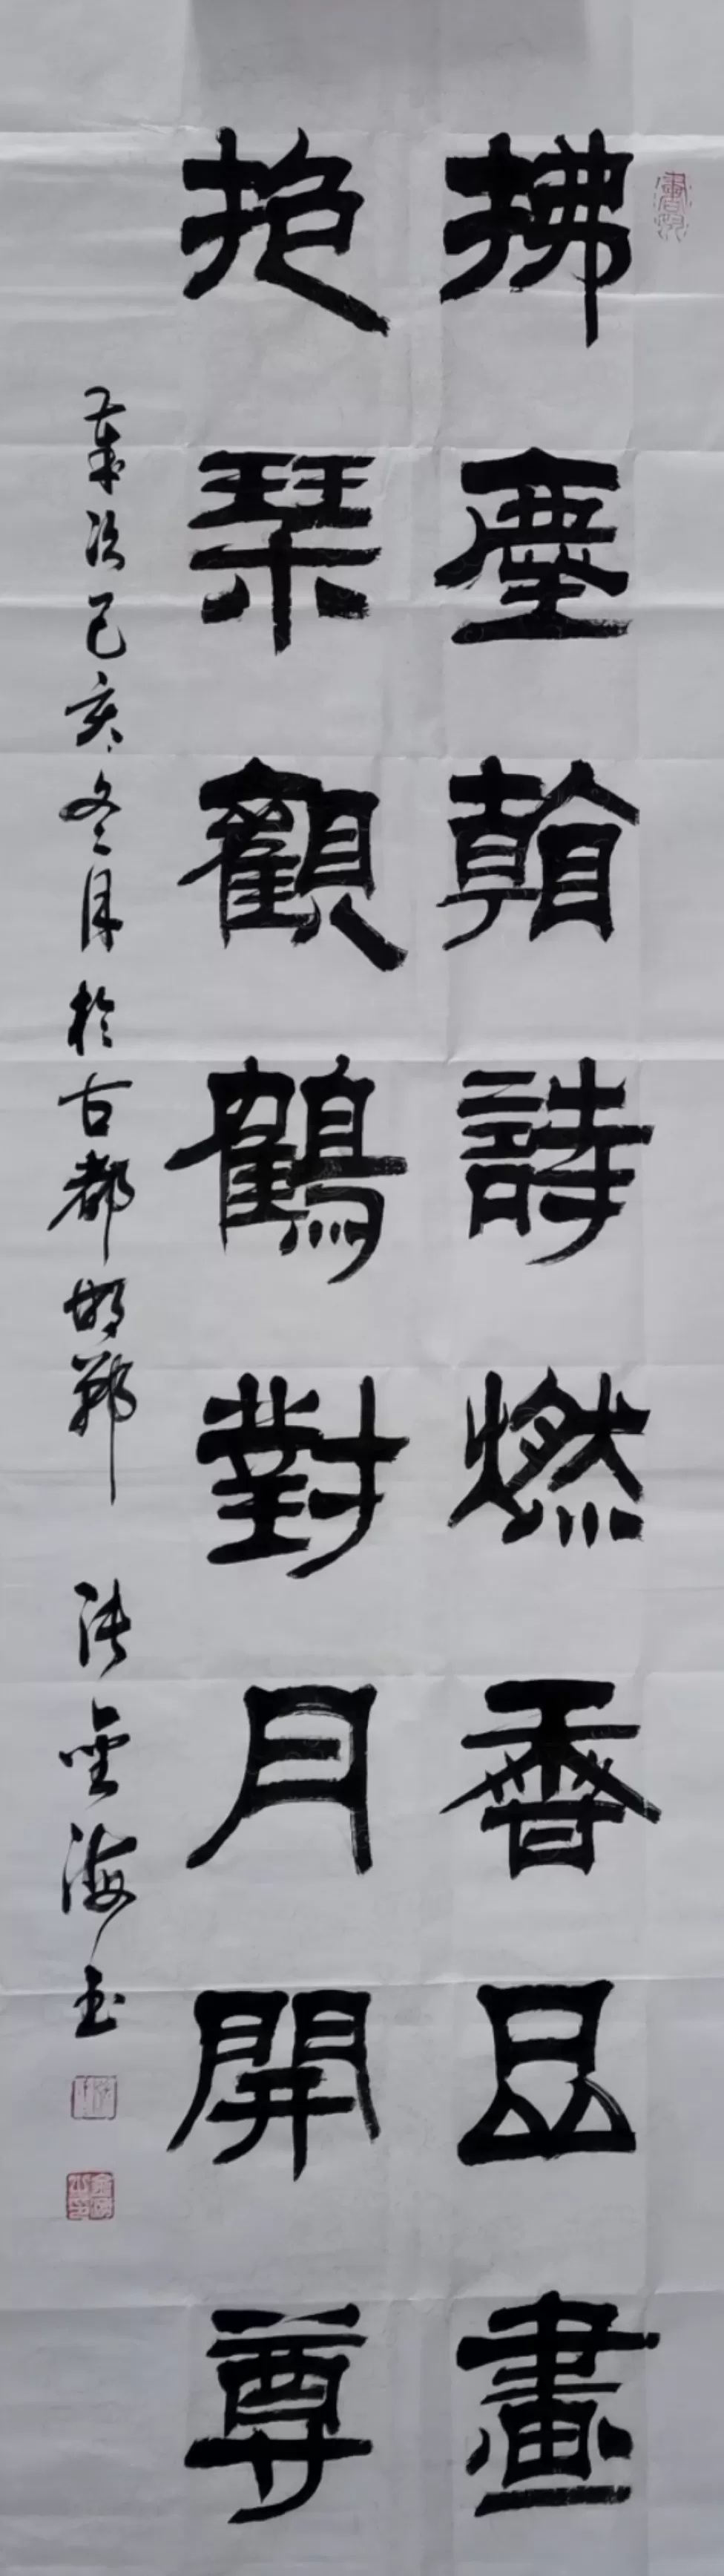 拂塵翰詩燃香品畫
抱琴觀鶴對月開尊
歲次己亥冬月於古都邯鄲 張金海书